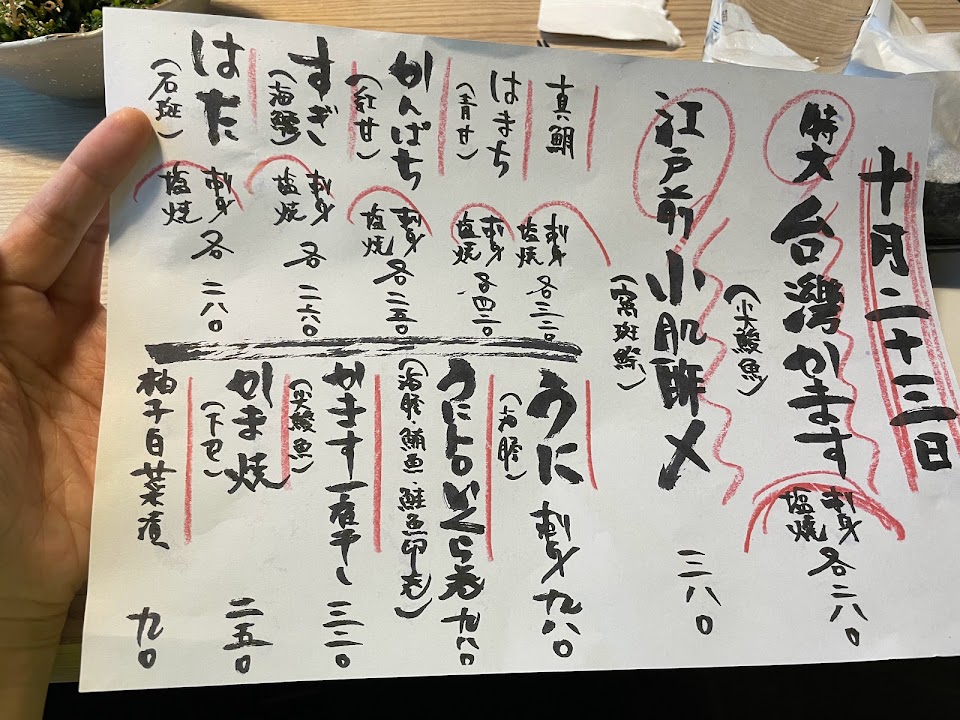 十月二十三日
特大 台灣かます
(尖鰻魚)
刺身
塩焼
各二八〇
江戸前 小肌酢〆
(窩斑鰶)
三八〇
真鯛
刺身
塩焼
各三二〇
はまち
(青甘)
刺身
塩焼
各四二〇
かんぱち
(紅甘)
刺身
塩焼
各二五〇
すぎ
(海鱺)
刺身
塩焼
各二六〇
はた
(石斑)
刺身
塩焼
各二八〇
うに 刺身 九八〇
(海膽)
うにトロいくら巻 九八〇
(海膽、鮪魚、鮭魚卵巻)
かます一夜干し 三二〇
かま焼 二五〇
(下巴)
柚子白菜漬 九〇